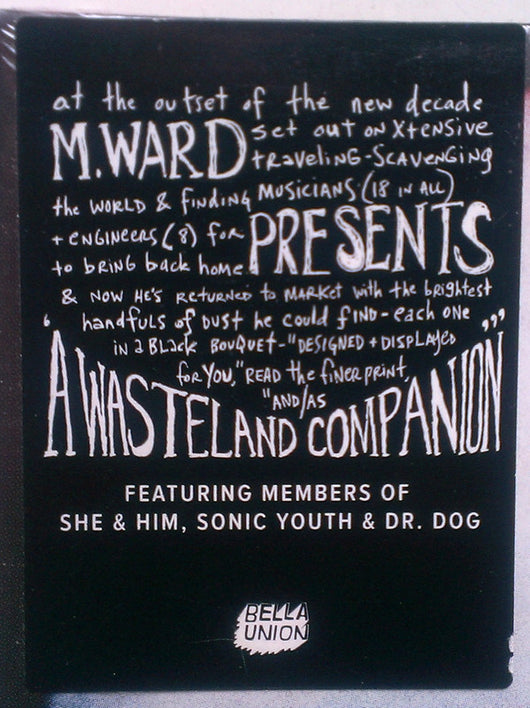 at the outset of the new decade
M.WARD set out on Xtensive
traveling-scavenging
the WORLD & finding MUSICIANS (18 IN ALL)
+ ENGINEERS (8) for PRESENTS
to bRING back home
& NOW HE'S RETURNED to MARKET with the brightest
handfuls of DUST he could fIND - each ONE
in a BLack BOUQUET - "DESIGNED + DISPLAYED
for YOU," READ the fiNER pRINT,
"AND/AS
'A WASTELAND COMPANION'"
FEATURING MEMBERS OF
SHE & HIM, SONIC YOUTH & DR. DOG
BELLA
UNION